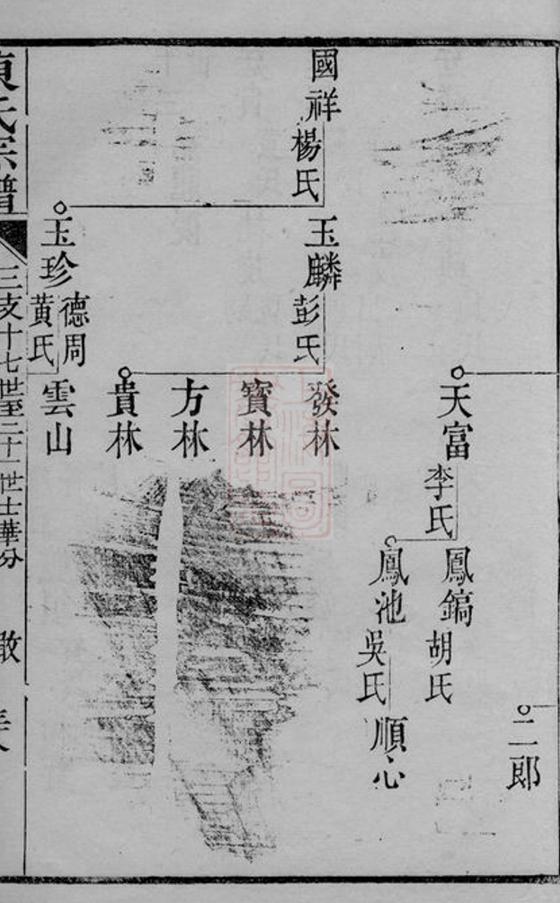 二郎
天富
李氏
鳳鎬
胡氏
鳳池
吳氏
順心
國祥
楊氏
玉麟
彭氏
發林
寶林
方林
貴林
玉珍
德周
黃氏
雲山
氏宗譜
三支十七世至二十一世士華分